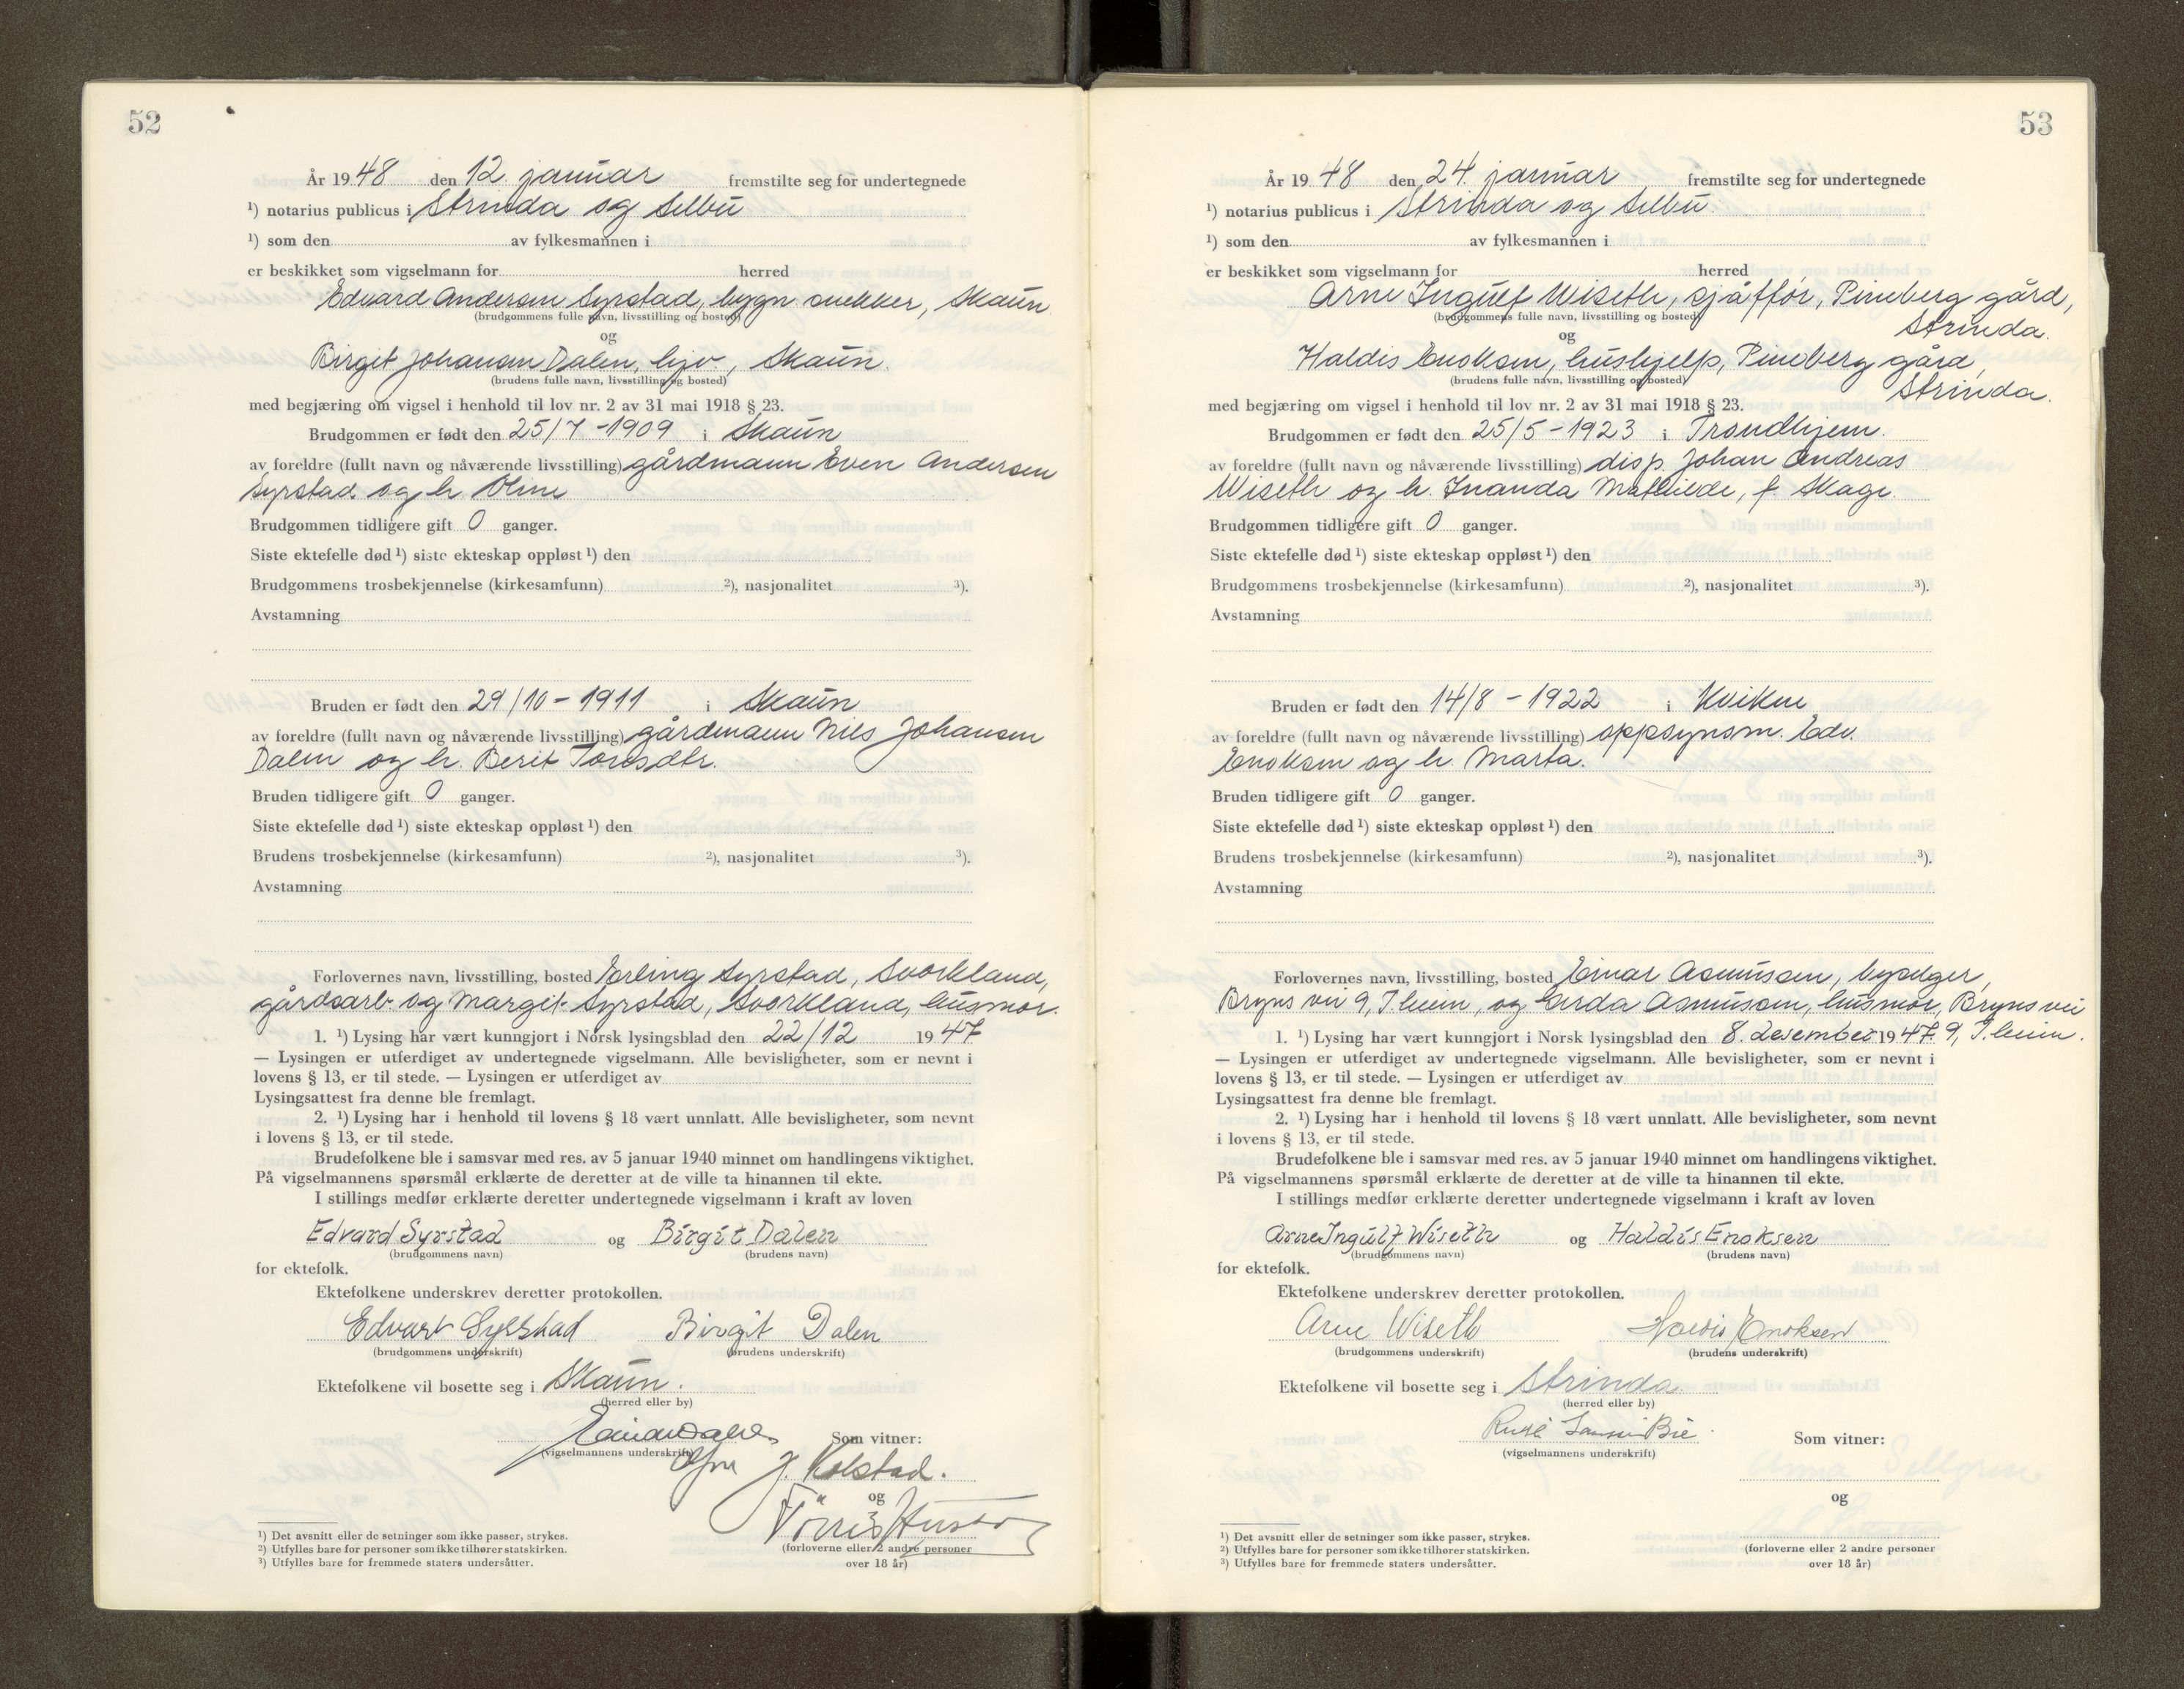 52
År 1948 den 12. januar fremstilte seg for undertegnede
¹) notarius publicus i Strinda og Selbu
¹) som den av fylkesmannen i
er beskikket som vigselmann for herred
Edvard Andersen Syrstad, bygn.snekker, Skaun
(brudgommens fulle navn, livsstilling og bosted)
og
Birgit Johansen Dalen, hjv., Skaun.
(brudens fulle navn, livsstilling og bosted)
med begjæring om vigsel i henhold til lov nr. 2 av 31 mai 1918 § 23.
Brudgommen er født den 25/7-1909 i Skaun
av foreldre (fullt navn og nåværende livsstilling) gårdmann Even Andersen
Syrstad og h. Oline
Brudgommen tidligere gift 0 ganger.
Siste ektefelle død ¹) siste ekteskap oppløst ¹) den
Brudgommens trosbekjennelse (kirkesamfunn) ²), nasjonalitet ³).
Avstamning
Bruden er født den 29/10-1911 i Skaun
av foreldre (fullt navn og nåværende livsstilling) gårdmann Nils Johansen
Dalen og h. Berit Toresdtr.
Bruden tidligere gift 0 ganger.
Siste ektefelle død ¹) siste ekteskap oppløst ¹) den
Brudens trosbekjennelse (kirkesamfunn) ²), nasjonalitet ³).
Avstamning
Forlovernes navn, livsstilling, bosted Erling Syrstad, Svorkland,
gårdsarb. og Margit Syrstad, Svorkland, husmor.
1. ¹) Lysing har vært kunngjort i Norsk lysingsblad den 22/12 1947
— Lysingen er utferdiget av undertegnede vigselmann. Alle bevisligheter, som er nevnt i
lovens § 13, er til stede. — Lysingen er utferdiget av
Lysingsattest fra denne ble fremlagt.
2. ¹) Lysing har i henhold til lovens § 18 vært unnlatt. Alle bevisligheter, som nevnt
i lovens § 13, er til stede.
Brudefolkene ble i samsvar med res. av 5 januar 1940 minnet om handlingens viktighet.
På vigselmannens spørsmål erklærte de deretter at de ville ta hinannen til ekte.
I stillings medfør erklærte deretter undertegnede vigselmann i kraft av loven
Edvard Syrstad og Birgit Dalen
(brudgommens navn) (brudens navn)
for ektefolk.
Ektefolkene underskrev deretter protokollen.
Edvart Syrstad Birgit Dalen
(brudgommens underskrift) (brudens underskrift)
Ektefolkene vil bosette seg i Skaun.
(herred eller by)
Som vitner:
(vigselmannens underskrift)
J. Kolstad.
og
(forloverne eller 2 andre personer
over 18 år)
¹) Det avsnitt eller de setninger som ikke passer, strykes.
²) Utfylles bare for personer som ikke tilhører statskirken.
³) Utfylles bare for fremmede staters undersåtter.
53
År 1948 den 24. januar fremstilte seg for undertegnede
¹) notarius publicus i Strinda og Selbu.
¹) som den av fylkesmannen i
er beskikket som vigselmann for herred
Arne Ingulf Wiseth, sjåffør, Pineberg gård,
(brudgommens fulle navn, livsstilling og bosted)
Strinda.
og
Haldis Enoksen, hushjelp, Pineberg gård,
(brudens fulle navn, livsstilling og bosted)
Strinda.
med begjæring om vigsel i henhold til lov nr. 2 av 31 mai 1918 § 23.
Brudgommen er født den 25/5-1923 i Trondhjem.
av foreldre (fullt navn og nåværende livsstilling) disp. Johan Andreas
Wiseth og h. Inanda Mathilde, f. Skage.
Brudgommen tidligere gift 0 ganger.
Siste ektefelle død ¹) siste ekteskap oppløst ¹) den
Brudgommens trosbekjennelse (kirkesamfunn) ²), nasjonalitet ³).
Avstamning
Bruden er født den 14/8-1922 i Kvikne
av foreldre (fullt navn og nåværende livsstilling) oppsynsm. Edv.
Enoksen og h. Marta.
Bruden tidligere gift 0 ganger.
Siste ektefelle død ¹) siste ekteskap oppløst ¹) den
Brudens trosbekjennelse (kirkesamfunn) ²), nasjonalitet ³).
Avstamning
Forlovernes navn, livsstilling, bosted Einar Asmussen, byselger,
Bryns vei 9, T.heim, og Gerda Asmussen, husmor, Bryns vei
1. ¹) Lysing har vært kunngjort i Norsk lysingsblad den 8. desember 1947 9, T.heim.
— Lysingen er utferdiget av undertegnede vigselmann. Alle bevisligheter, som er nevnt i
lovens § 13, er til stede. — Lysingen er utferdiget av
Lysingsattest fra denne ble fremlagt.
2. ¹) Lysing har i henhold til lovens § 18 vært unnlatt. Alle bevisligheter, som nevnt
i lovens § 13, er til stede.
Brudefolkene ble i samsvar med res. av 5 januar 1940 minnet om handlingens viktighet.
På vigselmannens spørsmål erklærte de deretter at de ville ta hinannen til ekte.
I stillings medfør erklærte deretter undertegnede vigselmann i kraft av loven
Arne Ingulf Wiseth og Haldis Enoksen
(brudgommens navn) (brudens navn)
for ektefolk.
Ektefolkene underskrev deretter protokollen.
Arne Wiseth Haldis Enoksen
(brudgommens underskrift) (brudens underskrift)
Ektefolkene vil bosette seg i Strinda.
(herred eller by)
Som vitner:
(vigselmannens underskrift)
og
(forloverne eller 2 andre personer
over 18 år)
¹) Det avsnitt eller de setninger som ikke passer, strykes.
²) Utfylles bare for personer som ikke tilhører statskirken.
³) Utfylles bare for fremmede staters undersåtter.